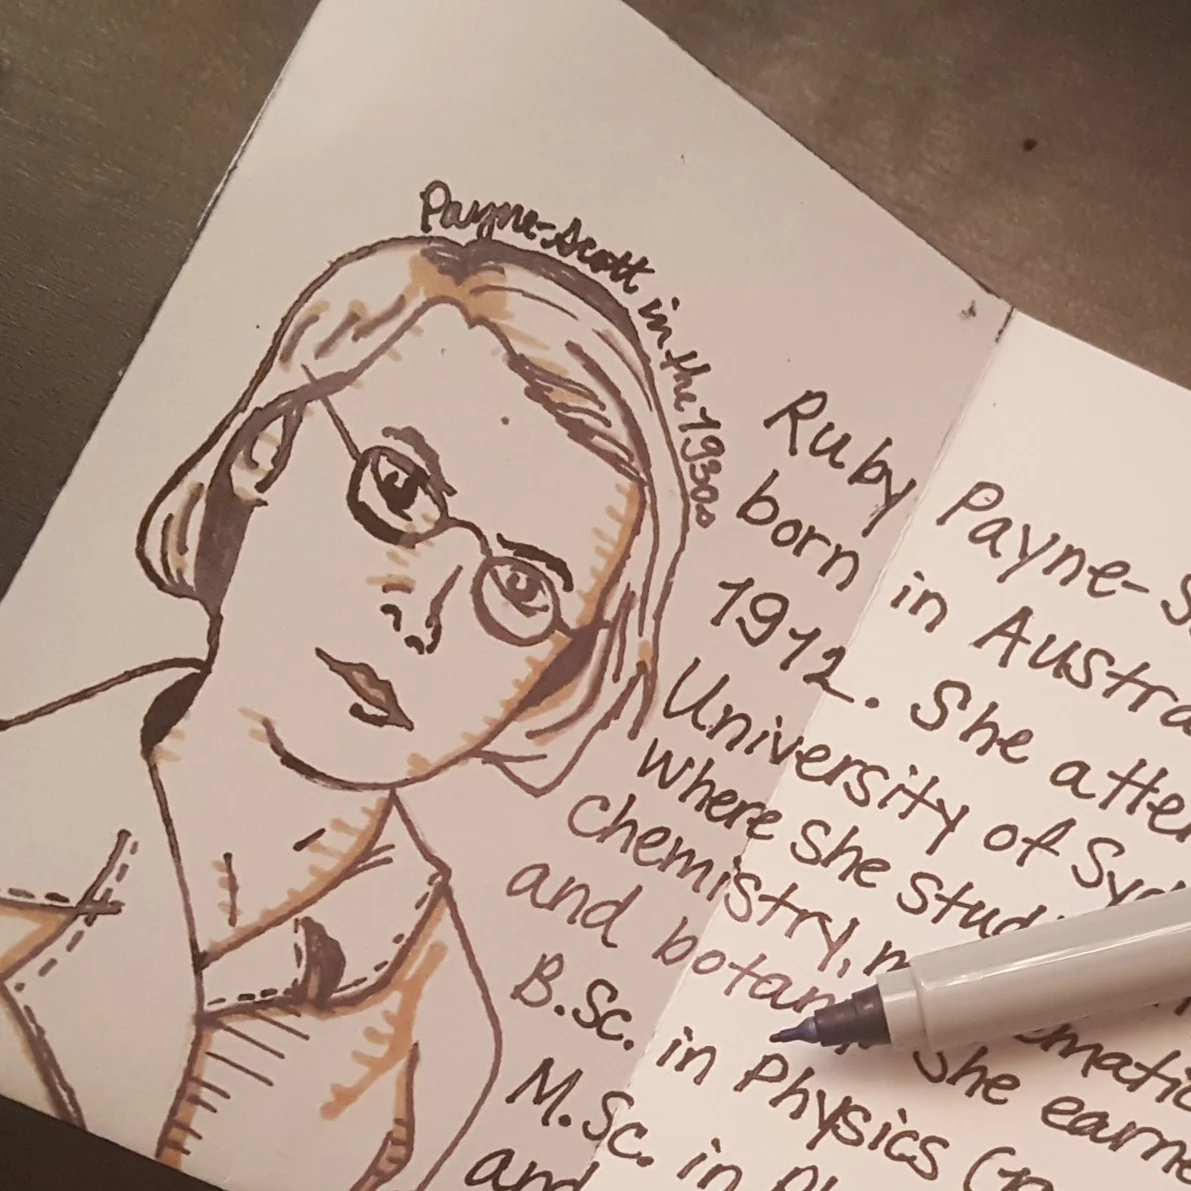 Payne-Scott in the 1930s
Ruby Payne-S
born in Austra
1912. She atten
University of Syd
where she stud
chemistry, m ematic
and botan She earne
B.Sc. in Physics
M.Sc. in Ph
and